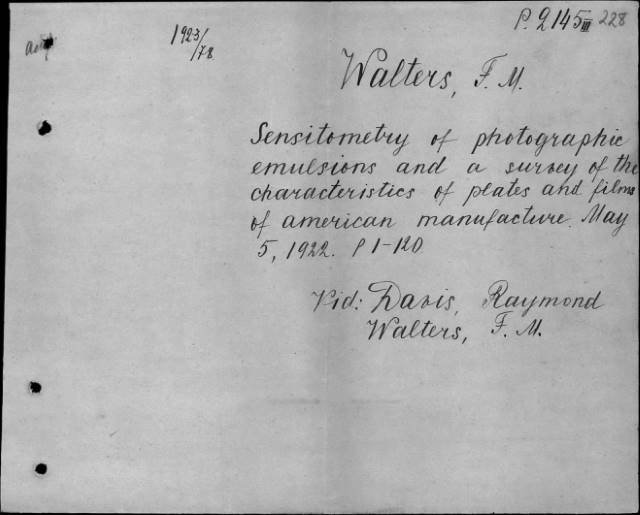 P. 2145III 228
1923/78
Walters, F. M.
Sensitometry of photographic
emulsions and a survey of the
characteristics of plates and films
of american manufacture. May
5, 1922. P 1-120
Vid: Davis, Raymond
Walters, F. M.